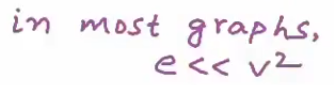 in most graphs,
e << v²